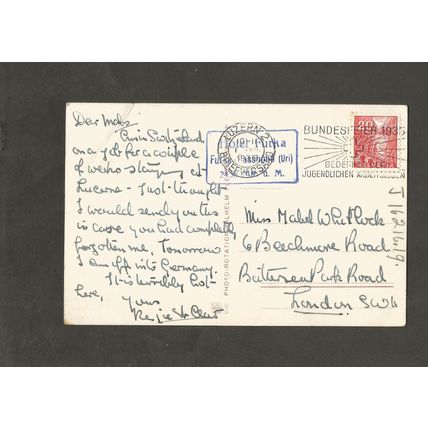 Dear Mabs
I'm in Switzerland
on a job for a couple
of weeks - staying at
Lucerne - Just thought
I would send you this
in case you had completely
forgotten me. Tomorrow
I am off into Germany.
It is terribly hot
here,
Yours
Reggie St Clair
PHOTO-ROTATION WILHELM
LUZERN 2
BRIEFVERSAND
Hotel Furka
Furka Passhöhe (Uri)
2436 m ü. M.
BUNDESFEIER 1935
BEDENKET DER
JUGENDLICHEN ARBEITSLOSEN
20
Miss Mabel Whitlock
6 Beechmore Road
Battersea Park Road
London SW11
J162169.